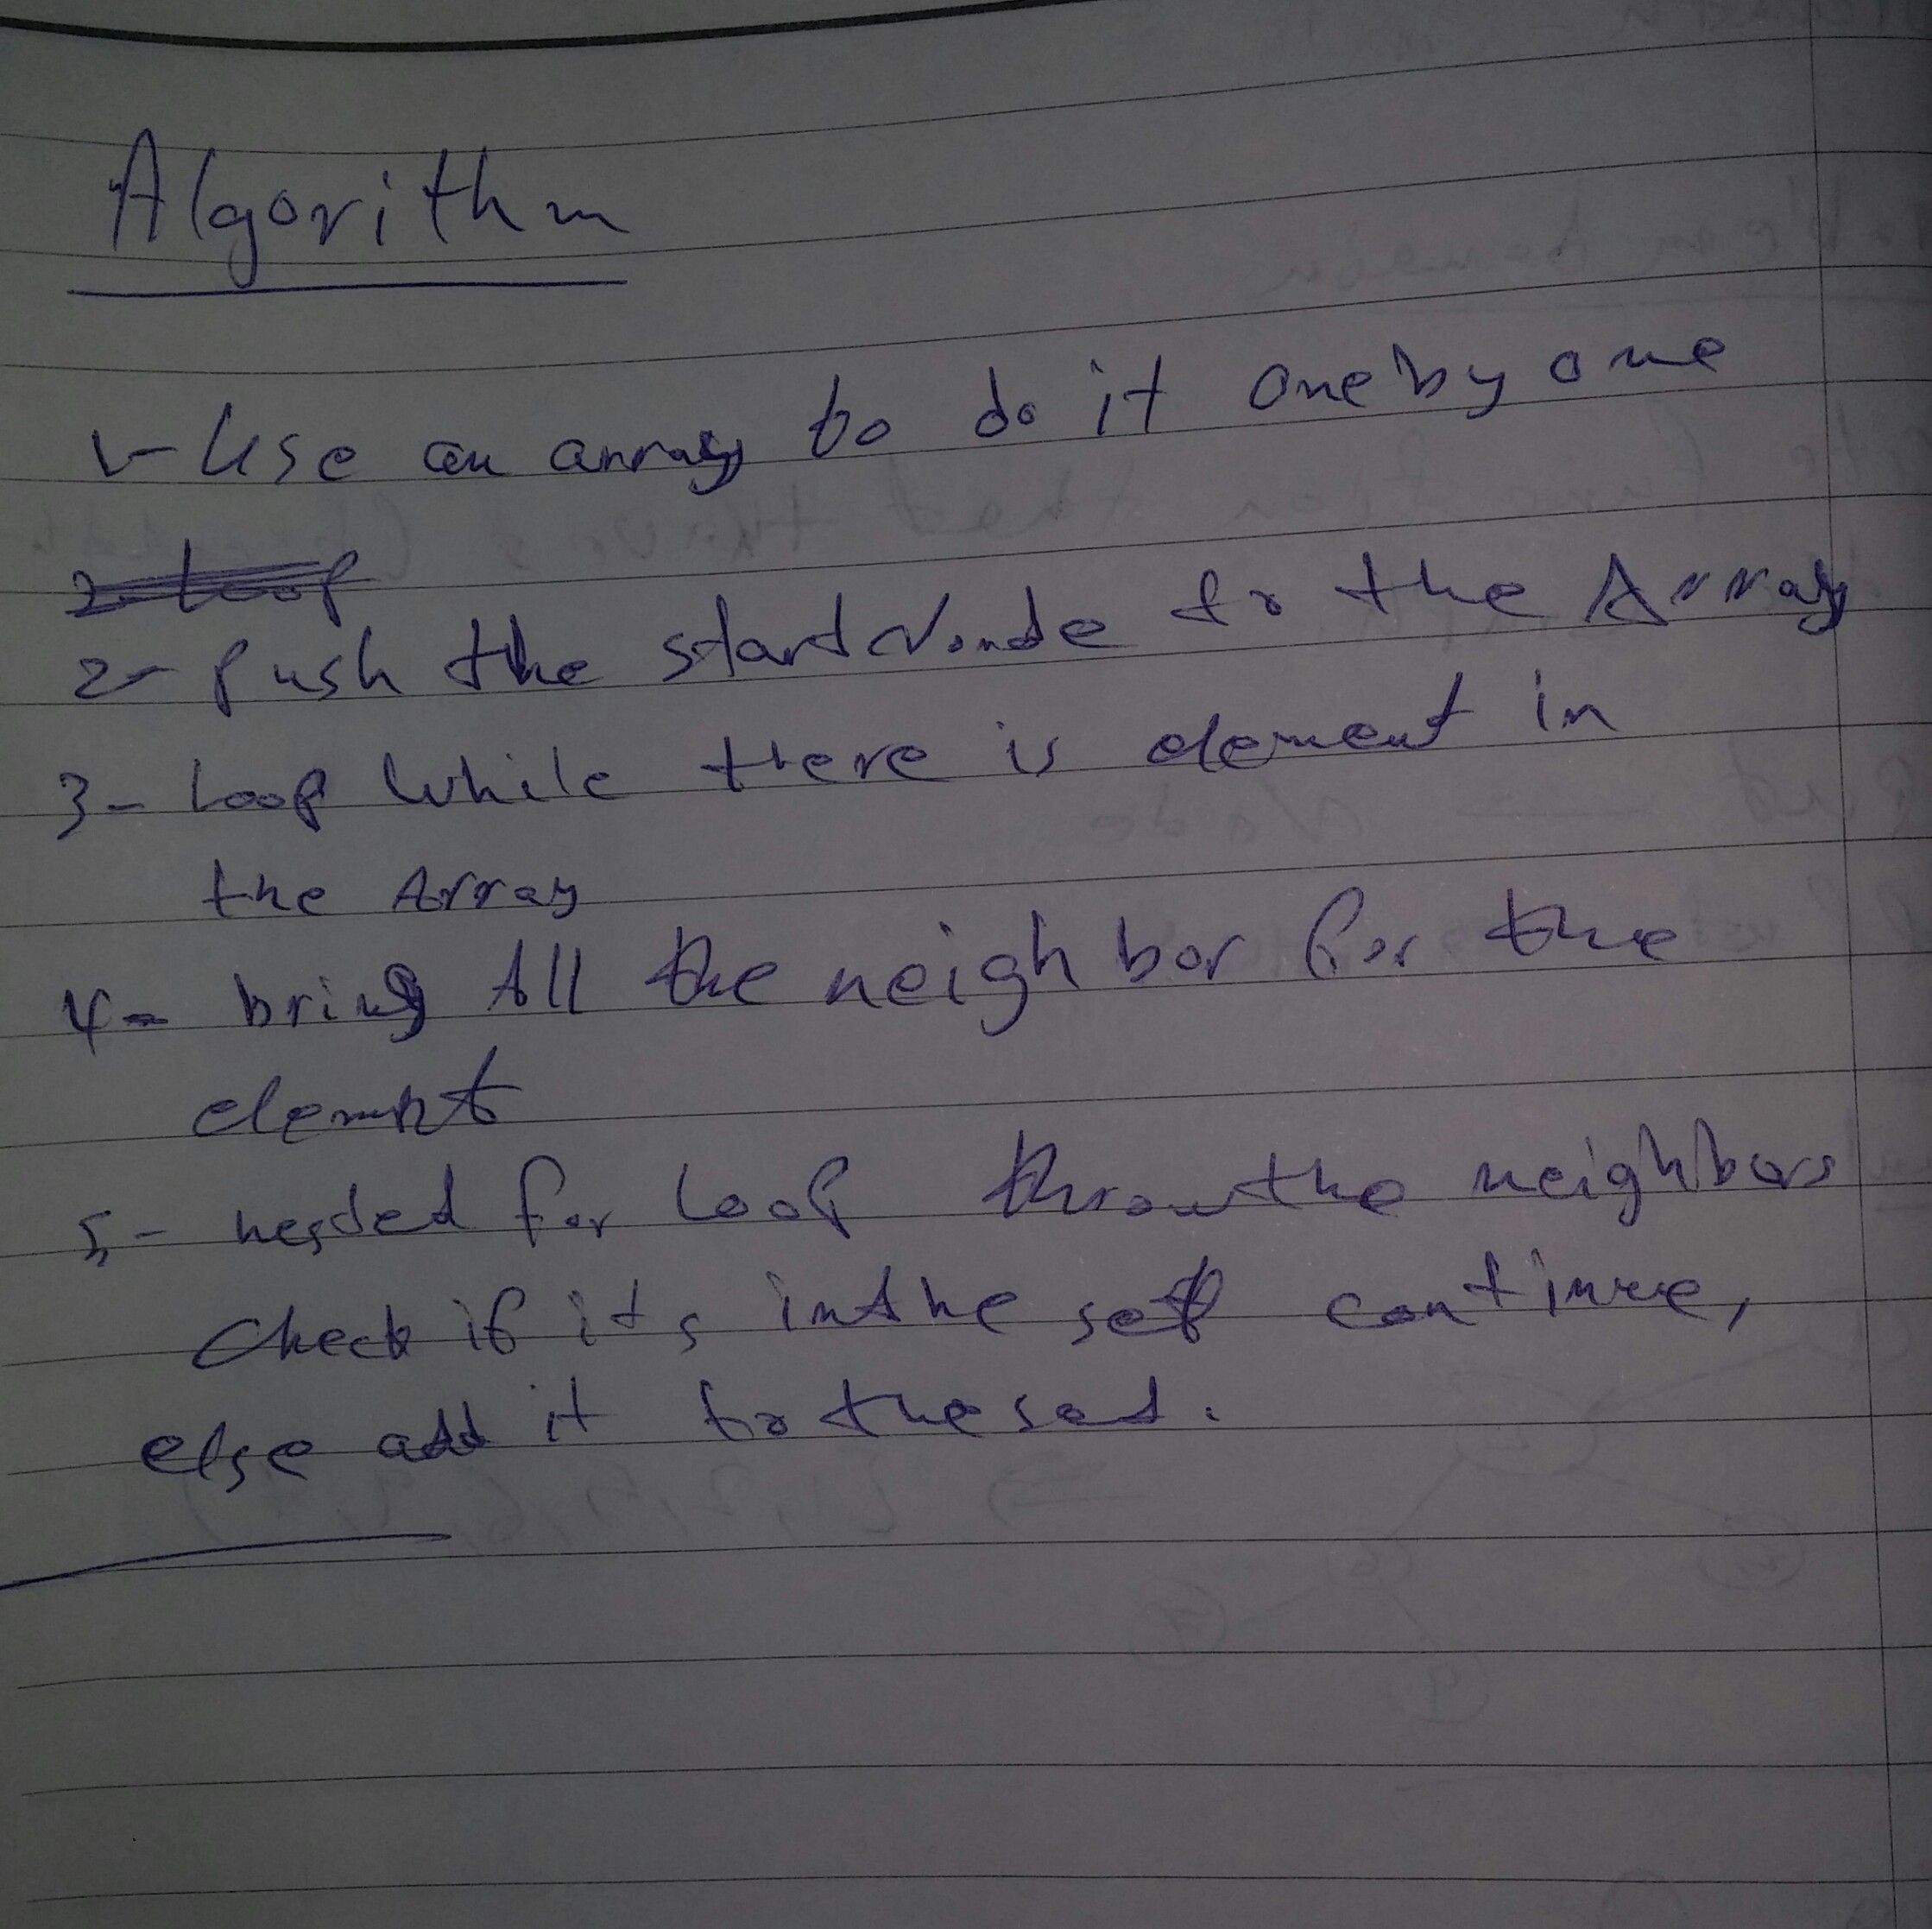 Algorithm
1- Use an array to do it one by one
2- Loop
2- Push the start Nonde to the Array
3- Loop While there is element in
the Array
4- bring All the neighbor for the
element
5- nested for Loop throw the neighbors
check if it's in the set continue,
else add it to the set.